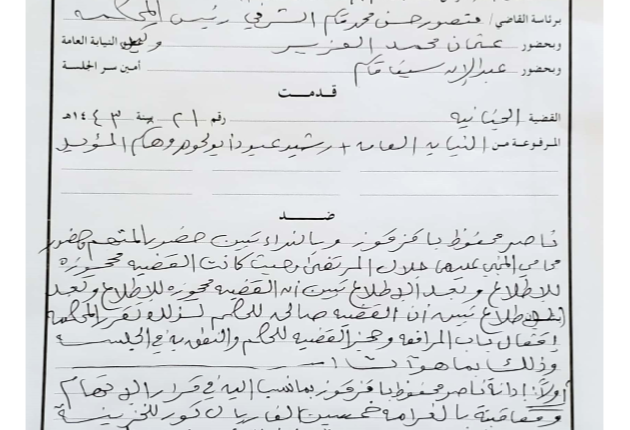 برئاسة القاضي/ منصور حسن محمد قاسم الشرفي رئيس المحكمة
وبحضور عثمان محمد العزيز وكيل النيابة العامة
وبحضور عبدالإله سيف قاسم أمين سر الجلسة
قدمت
القضية الجنائية رقم ٢١ سنة ١٤٤٣هـ
المرفوعة من النيابه العامه + رشيد عبود أبو لحوم وهام المؤيد
ضد
ناصر محفوظ باقزقوز وبالنداء تبين حضور المتهم حضور
محامي المجني عليهما خلال المرتفقين حيث كانت القضيه محجوزه
للاطلاع وبعد الإطلاع تبين أن القضيه محجوزه للإطلاع وبعد
الإطلاع تبين أن القضيه صالحه للحكم لذلك تقرر المحكمه
إقفال باب المرافعه وحجز القضيه للحكم والنطق به في الجلسة
وذلك بما هو آت
أولاً: إدانة ناصر محفوظ باقزقوز بما نسب اليه في قرار الاتهام
ومعاقبته بالغرامه خمسين الف ريال تورد للخزينة